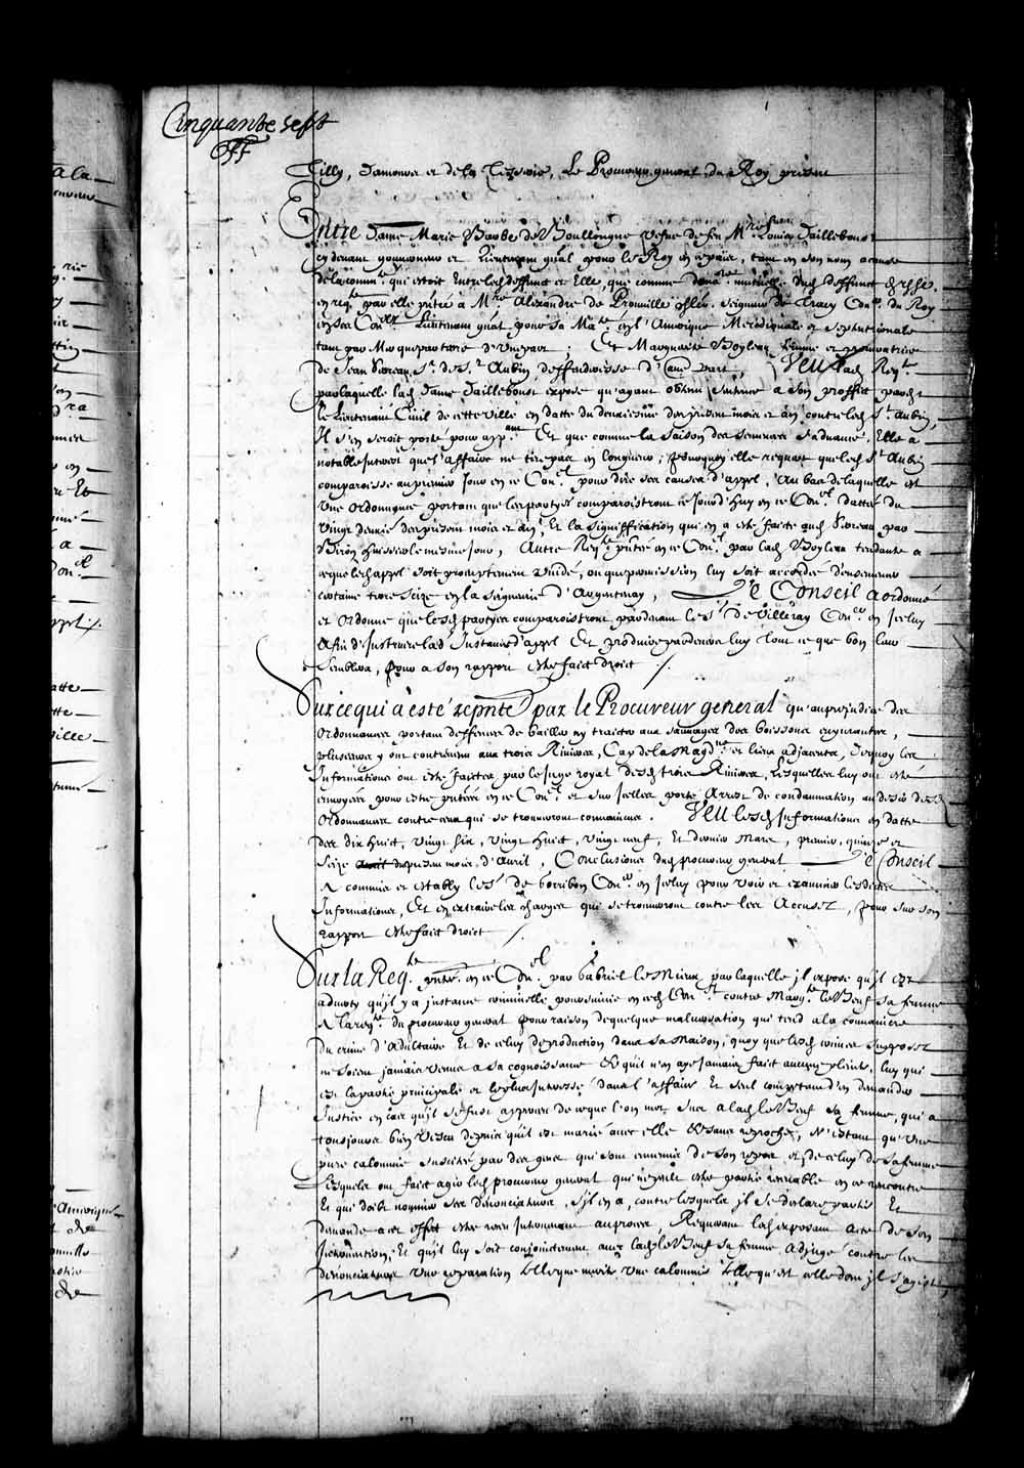 Cinquante sept
Tilly, Damours et de la Tesserie, Le Procureur general du Roy present
Entre Dame Marie Barbe de Boullongne vefve de feu Mre Louis Dailleboust
cy devant gouverneur et Lieutenant gnāl pour le Roy en ce païs, tant en son nom acause
de la commté qui estoit Entre led deffunct et Elle, que comme donatre mutuelle dud deffunct
en reqte par elle pntée à Mre Alexandre de Prouville chlier. seigneur de Tracy Coner. du Roy
en ses Conls Lieutenant gnāl pour sa Maté en l'Amerique Meridionale et Septentrionale
tant par Mer que par terre d'Vne part ; Et Margueritte Boyleau femme et procuratrice
de Jean Sr. de St. Aubin deffenderesse d'autre part, Veu lad Reqte
par laquelle lad Dame Dailleboust expose qu'ayant obtenu sentence a son proffict pardt
le Lieutenant Civil de cette ville en datte du deuxiesme du present mois et an contre led St. Aubin,
Il s'en seroit porté pour appant Et que comme la saison des semences s'advance, Elle a
notable Interest que l'affaire ne tire pas en longueur ; pourquoy elle requert que led St. Aubin
comparoisse au premier Jour en ce Conel pour dire ses causes d'appel, Au bas de laquelle est
Vne ordonnance portant que les partyes comparoistront ce Jourd'huy en ce Conel datté du
vingt du present mois et an, Et la signiffication qui en a esté faicte aud par
Biron huissier le mesme Jour, Autre Reqte pntée en ce Conel par lad Boyleau tendante a
ce que led appel soit promptement vuidé, ou que permission luy soit accordée d'ensemencer
certaine terre size en la seigneurie d'Argentenay, Le Conseil a ordonné
et ordonne que lesd partyes comparoistront pardevant le Sr de Villeray Coner en Iceluy
Afin d'Instruire lad Instance d'appel Et produire pardevers luy tout ce que bon leur
semblera, pour a son rapport estre faict droict
Sur ce qui a esté repnté par le Procureur general qu'au prejudice des
ordonnances portant deffenses de bailler ny traicter aux sauvages des boissons enyvrantes,
plusieurs y ont contrevenu aux trois Rivieres, Cap de la Magdne et lieux adjacents, Dequoy les
Informations ont esté faictes par le Juge royal desd trois Rivieres, lesquelles luy ont esté
envoyées pour estre pntées en ce Conel et sur Icelles porté Arrest de condamnation au desir desd
ordonnances contre ceux qui se trouveront convaincus. Veu lesd Informations en datte
des dix huict, vingt six, vingt huict, vingt neuf, Et dernier Mars, premier, quinze et
seize du present mois d'Avril, Conclusions dud procureur general Le Conseil
A commis et estably le Sr de Coner en Iceluy pour voir et examiner lesdictes
Informations, Et en extraire les charges qui se trouveront contre les Accusez, pour sur son
rapport estre faict droict
Sur la Reqte pntée en ce Conel par Gabriel le Mieux par laquelle Jl expose qu'il est
adverty qu'il y a Instance criminelle poursuivie en ced Conel contre Margte leBeuf sa femme
A la reqte du procureur general pour raison de quelque malversation qui tend a la
du crime d'adultaire Et de celuy de prostution dans sa maison, quoy que lesd crimes supposez
ne soient jamais venus a sa cognoissance Et qu'il n'en aye jamais faict aucune plainte, luy qui
est la partie principale et le plus Interessé dans l'affaire Et seul competant d'en demander
Justice en cas qu'il se fust apperceu de ce que l'on met sur a lad le Beuf sa femme, qui a
tousjours bien vescu depuis qu'il est marié avec elle Et sans reproches, N'estant qu'Vne
pure calomnie suscitée par des gens qui sont ennemis de son repos et de celuy de sa femme
lesquels ont faict agir led procureur general qui ne peult estre partie recevable en ce rencontre
Et qui doibt nommer ses denonciateurs, s'il en a, contre lesquels Jl se declare partie Et
demande a cet effect estre receu Intervenant au proces, Requerant led exposant acte de son
Intervention, Et qu'il luy soit conjoinctement avec lad le Beuf sa femme adjugé contre les
denonciateurs Vne reparation telle que merite Vne calomnie telle qu'est celle dont Jl s'agist,